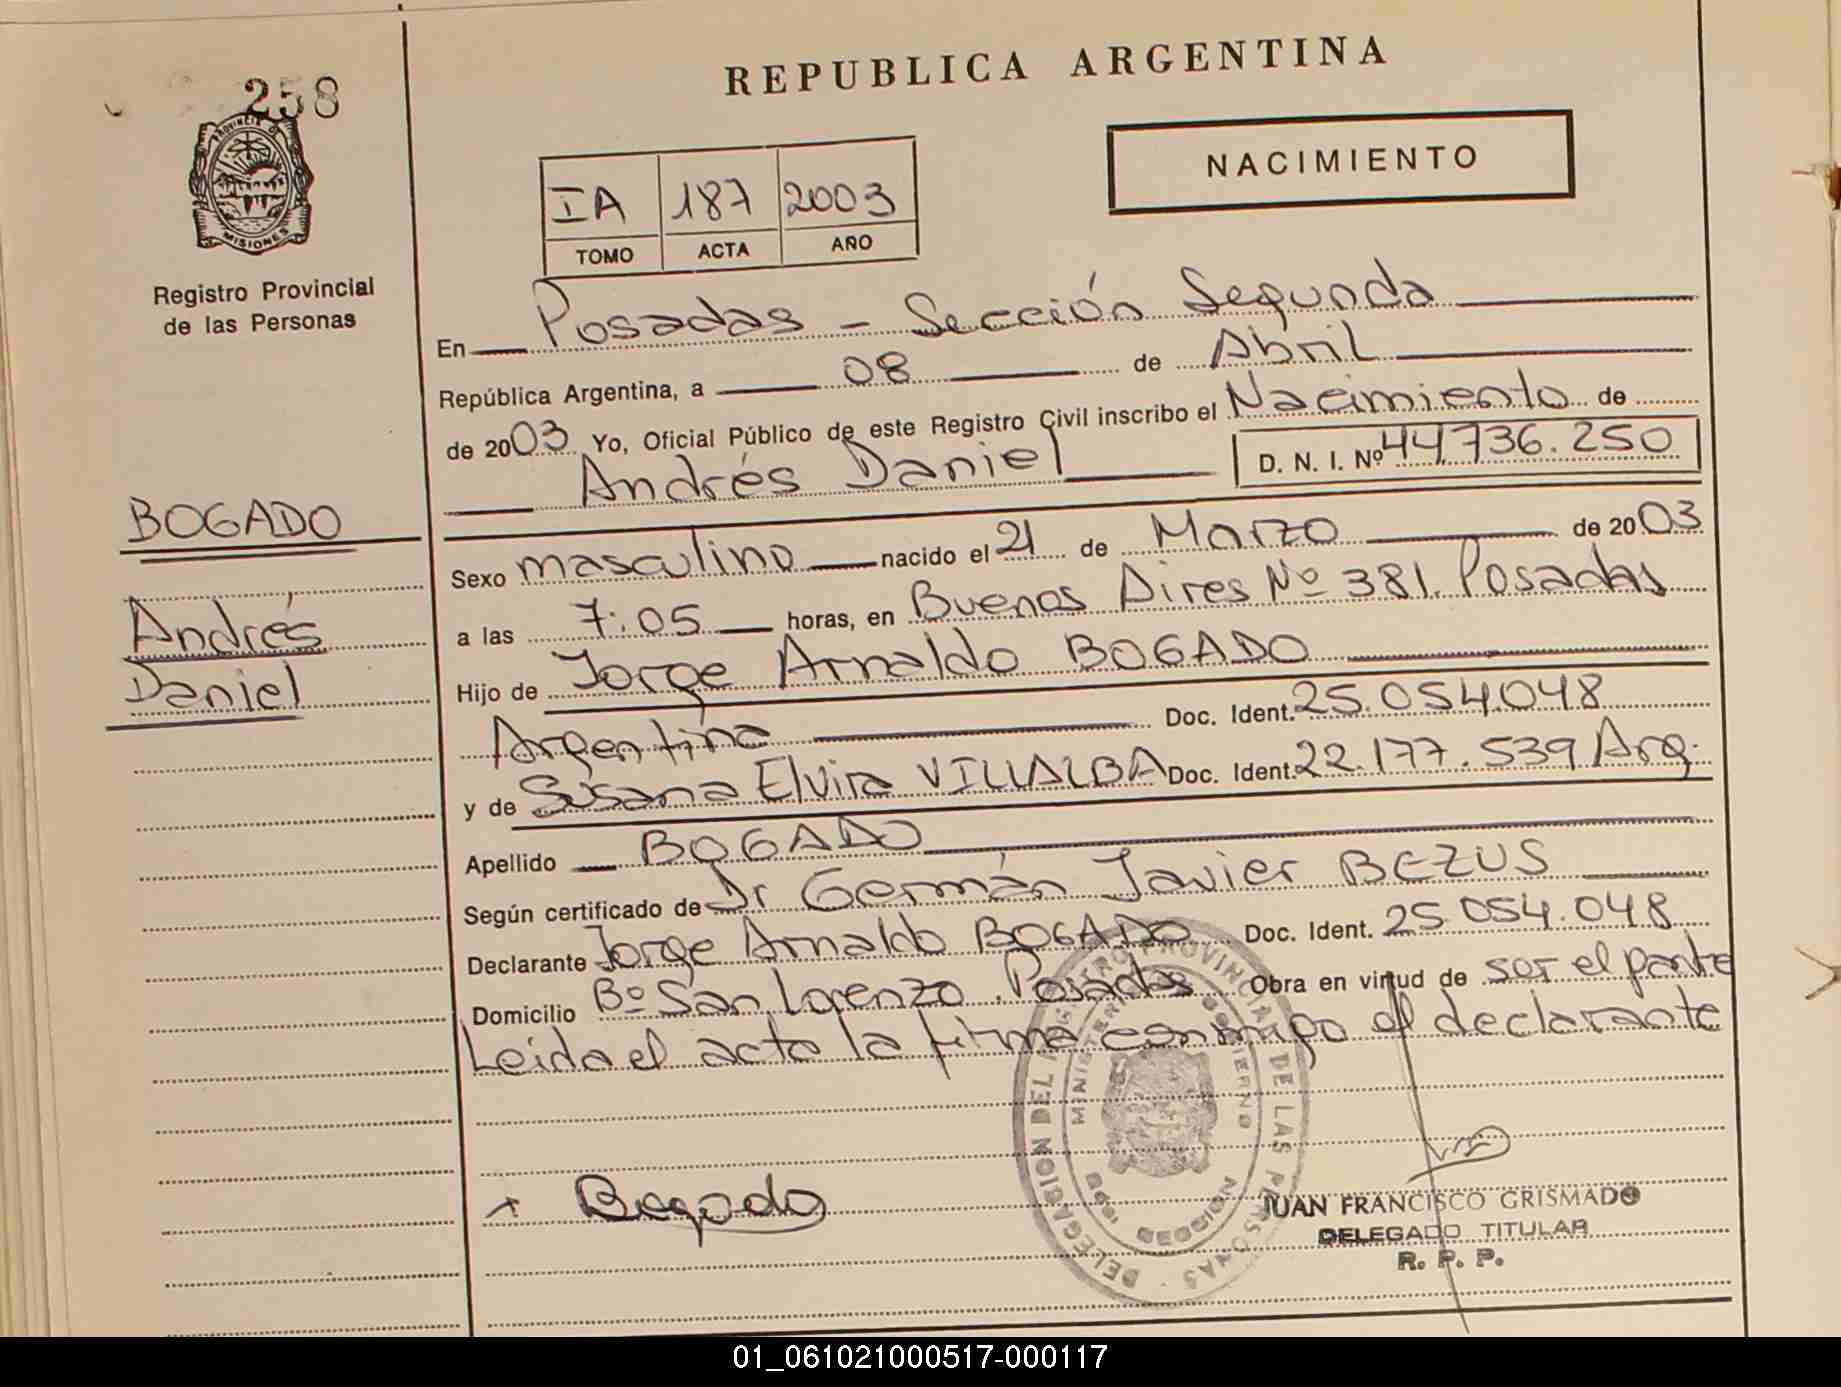 258
PROVINCIA DE
MISIONES
Registro Provincial
de las Personas
BOGADO
Andrés
Daniel
REPUBLICA ARGENTINA
NACIMIENTO
IA 187 2003
TOMO ACTA AÑO
En Posadas - Sección Segunda
República Argentina, a 08 de Abril
de 2003 Yo, Oficial Público de este Registro Civil inscribo el Nacimiento de
Andrés Daniel D. N. I. Nº 44.736.250
Sexo masculino nacido el 21 de Marzo de 2003
a las 7:05 horas, en Buenos Aires Nº 381. Posadas
Hijo de Jorge Arnaldo BOGADO
Argentina Doc. Ident. 25.054.048
y de Susana Elvira VILLALBA Doc. Ident. 22.177.539 Arg.
Apellido BOGADO
Según certificado de Dr Germán Javier BEZUS
Declarante Jorge Arnaldo BOGADO Doc. Ident. 25.054.048
Domicilio Bº San Lorenzo. Posadas Obra en virtud de ser el padre
Leida el acta la firma conmigo el declarante
Bogado
DELEGACION DEL REGISTRO PROVINCIAL DE LAS PERSONAS
MINISTERIO DE GOBIERNO
JUAN FRANCISCO GRISMADO
DELEGADO TITULAR
R. P. P.
01_061021000517-000117